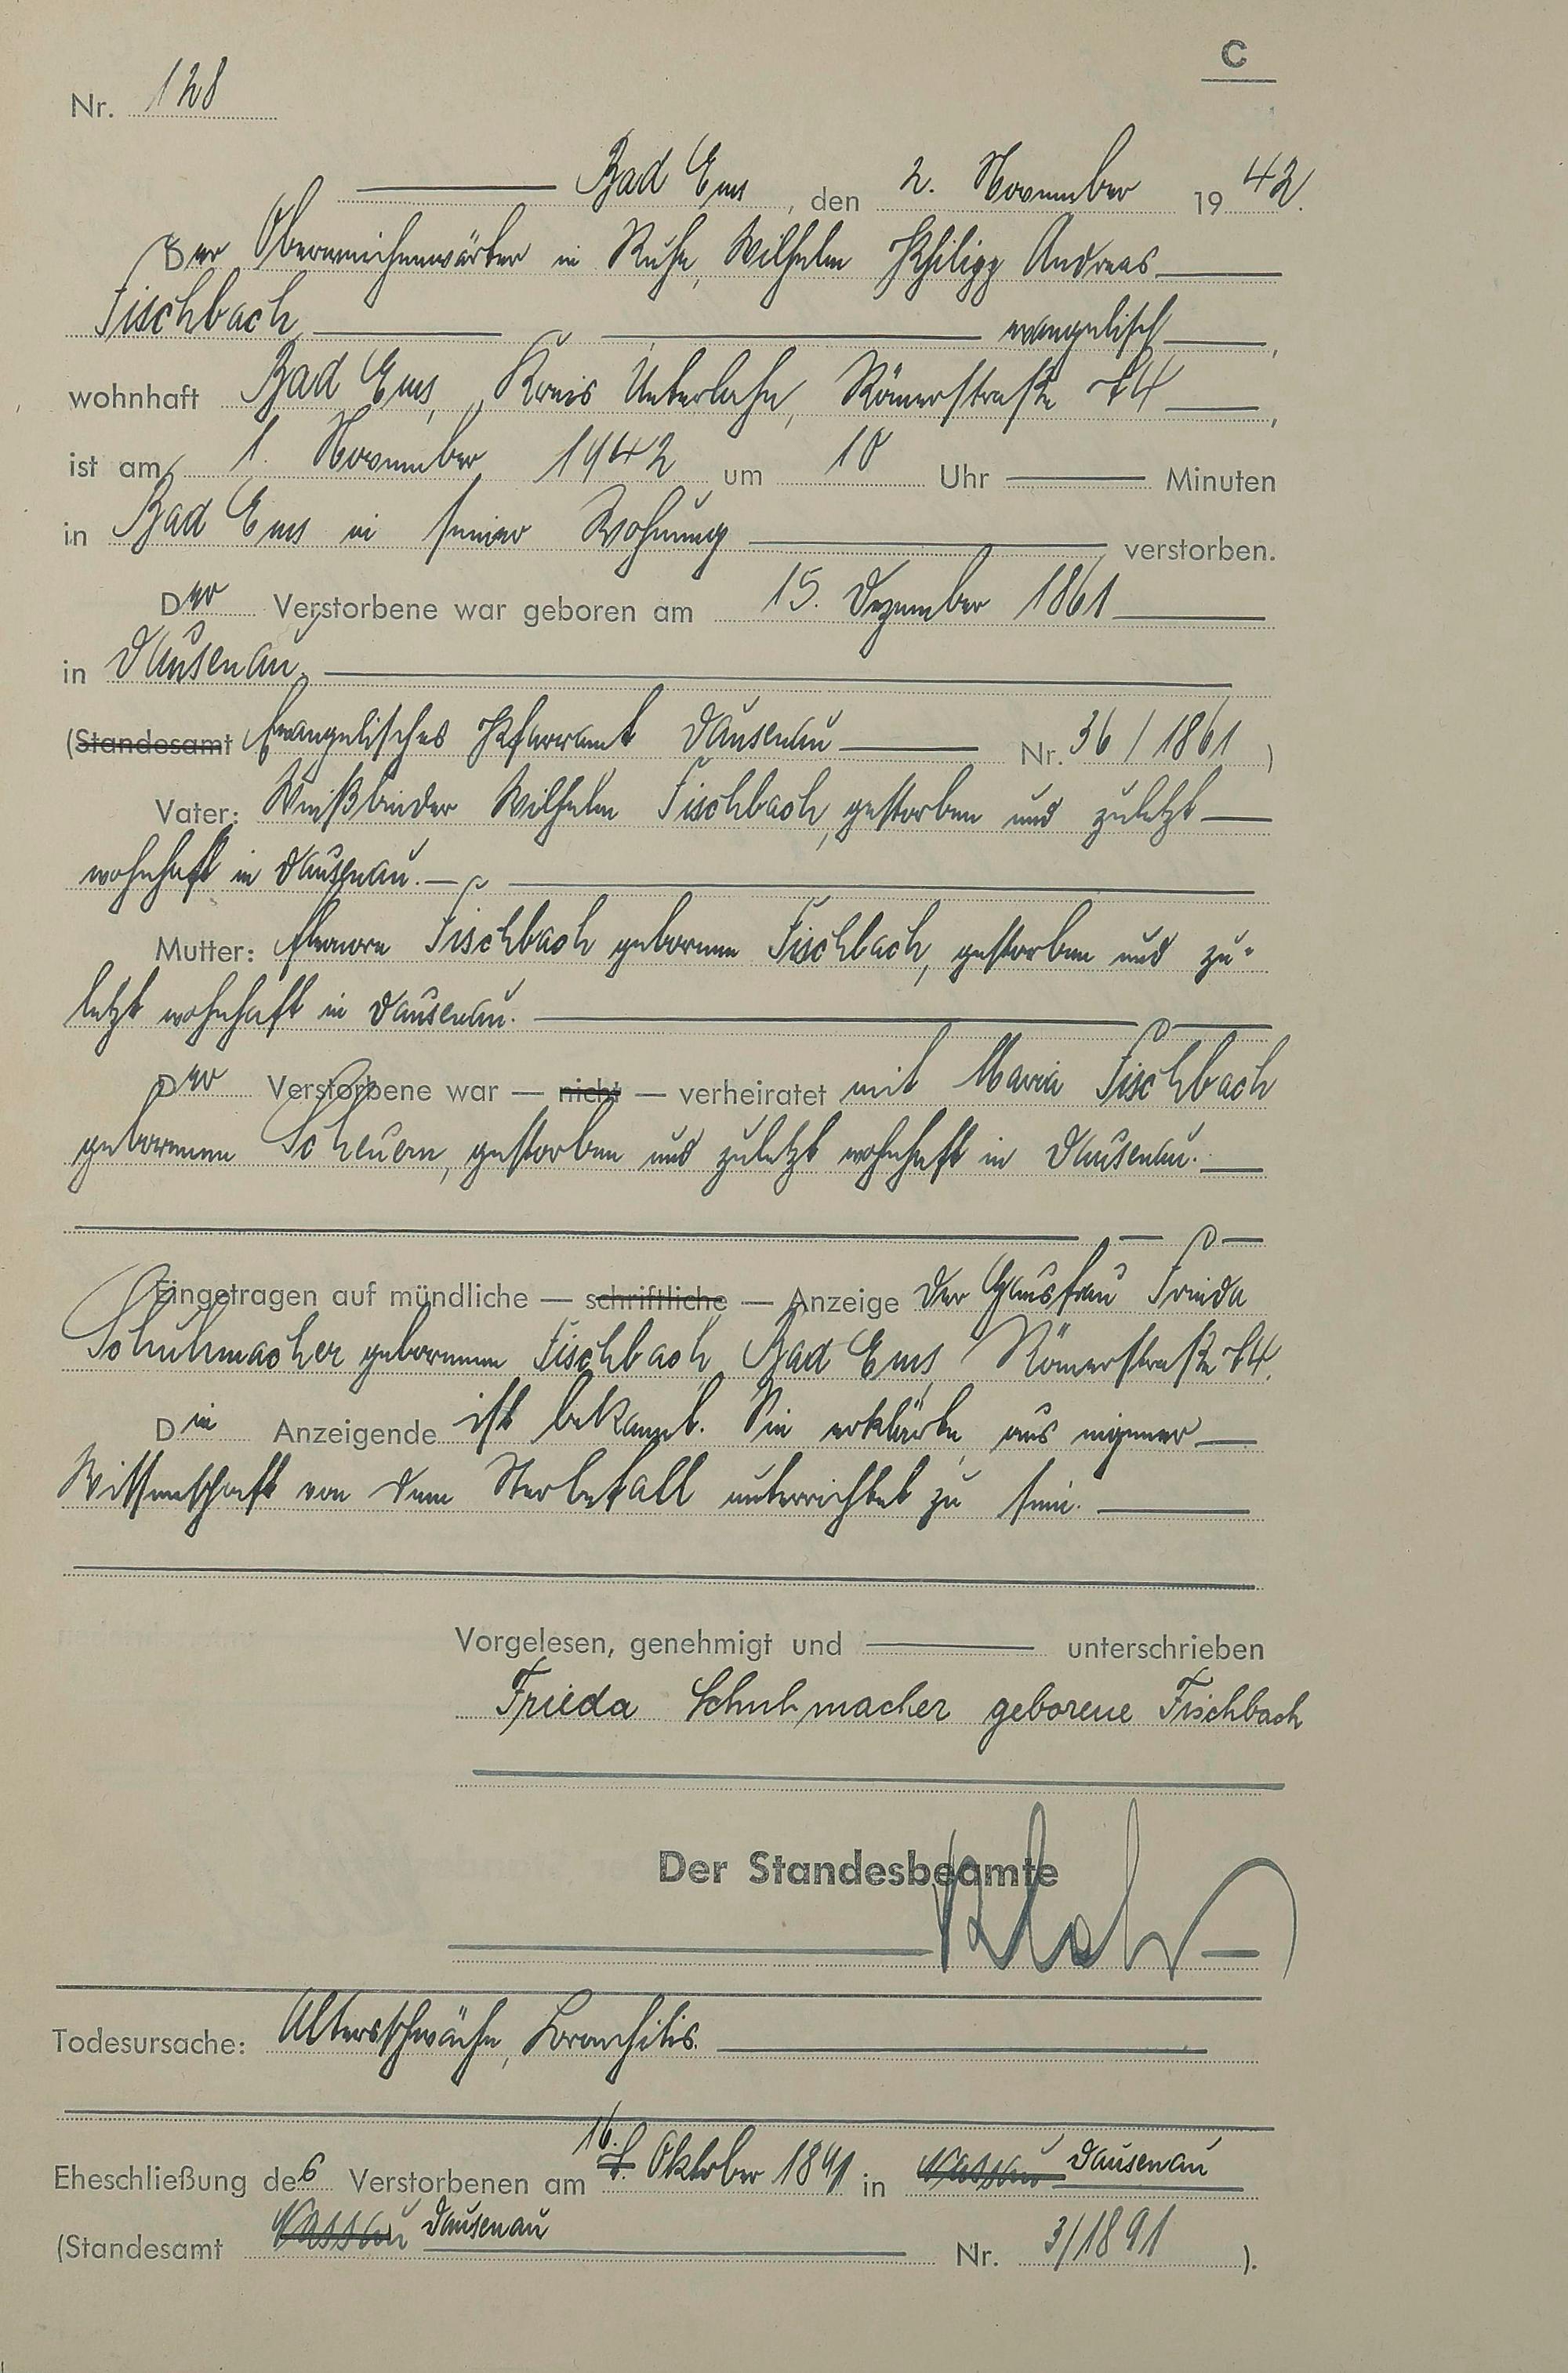 C
Nr. 128
Bad Ems, den 2. November 1942.
Der Oberweichenwärter in Ruhe, Wilhelm Philipp Andreas
Fischbach evangelisch,
wohnhaft Bad Ems, Kreis Unterlahn, Römerstraße 74,
ist am 1. November 1942 um 10 Uhr Minuten
in Bad Ems in seiner Wohnung verstorben.
Der Verstorbene war geboren am 15. Dezember 1861
in Dausenau.
(Standesamt Evangelisches Pfarramt Dausenau Nr. 36/1861)
Vater: Weißbinder Wilhelm Fischbach, gestorben und zuletzt
wohnhaft in Dausenau.
Mutter: Fischbach geborenen Fischbach, gestorben und zu-
letzt wohnhaft in Dausenau.
Der Verstorbene war — nicht — verheiratet mit Maria Fischbach
geborenen Scheuern, gestorben und zuletzt wohnhaft in Dausenau.
Eingetragen auf mündliche — schriftliche — Anzeige der Hausfrau Frieda
Schuhmacher geborenen Fischbach, Bad Ems, Römerstraße 74.
Die Anzeigende ist bekannt. Sie erklärte, aus eigener
Wissenschaft von dem Sterbefall unterrichtet zu sein.
Vorgelesen, genehmigt und unterschrieben
Frieda Schuhmacher geborene Fischbach
Der Standesbeamte
Todesursache: Altersschwäche, Bronchitis.
16.
Eheschließung des Verstorbenen am 7. Oktober 1891 in Nassau Dausenau
(Standesamt Nassau Dausenau Nr. 3/1891).